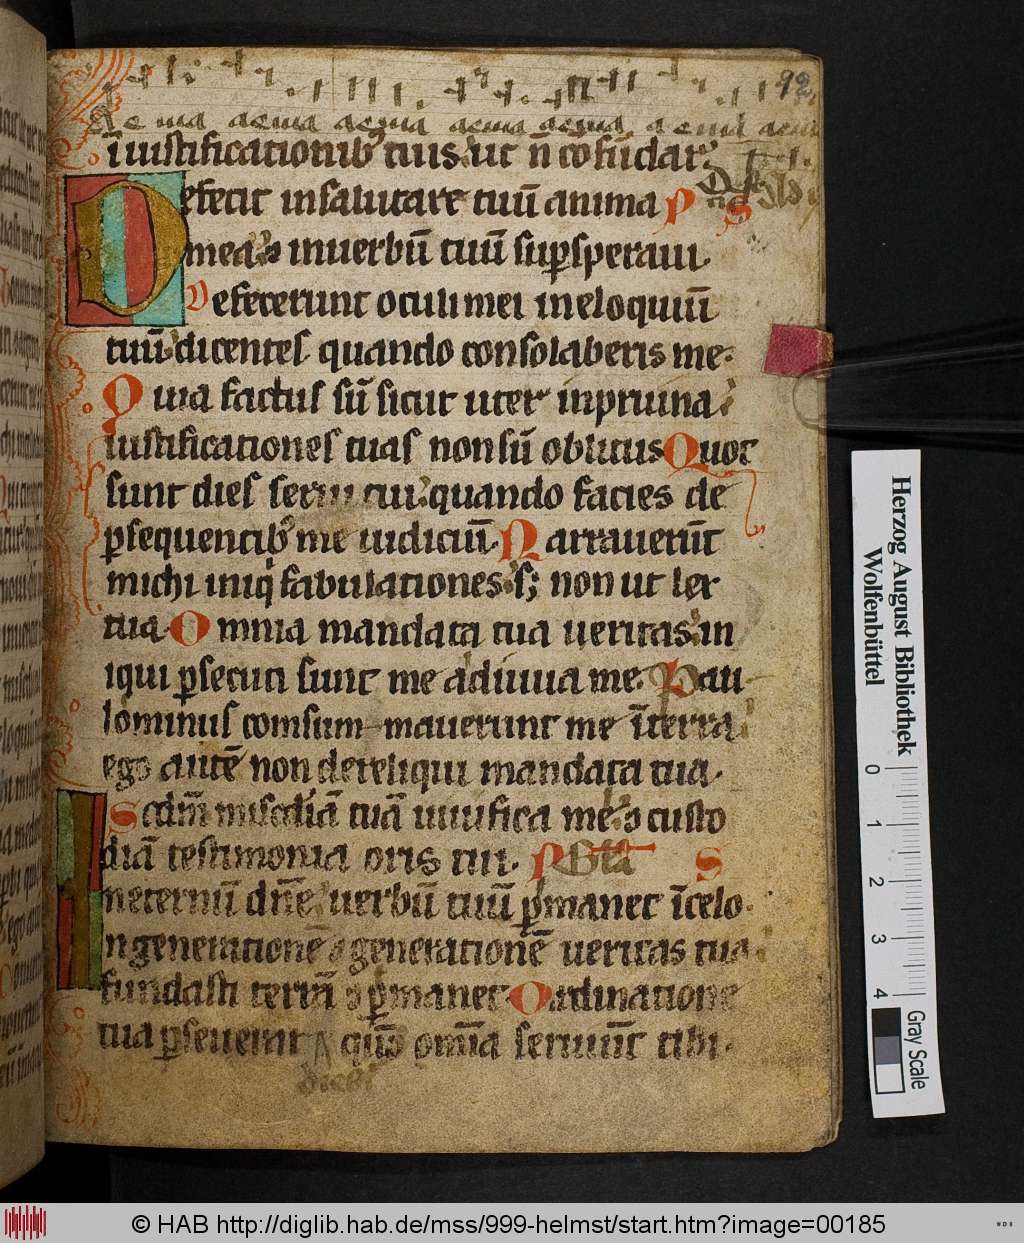 92
aeuia aeuia aeuia aeuia aeuia aeuia aeuia
ī iustificationib᷒ tuis ut n̄ cōfūdar.
Defecit in salutare tuū anima P S
mea. ⁊ in uerbū tuū suꝑsperaui.
Defecerunt oculi mei in eloquiū
tuū dicentes quando consolaberis me.
Quia factus sū sicut uter in pruina
iustificationes tuas non sū oblitus Quot
sunt dies serui tui. quando facies de
ꝑsequentib᷒ me iudiciū. Narrauerūt
michi iniq̇ fabulationes. s; non ut lex
tua. Omnia mandata tua ueritas. in
iqui ꝑsecuti sunt me adiuua me. Pau
lominus comsummauerunt me ī terra
ego autē non dereliqui mandata tua.
Scdm̄ misc̄diā tuā uiuifica me. ⁊ custo
diā testimonia oris tui. P Gl̄a S
In eternū dn̄e uerbū tuū ꝑmanet ī celo.
In generationē ⁊ generationē ueritas tua
fundasti terrā ⁊ ꝑmanet Ordinatione
tua ꝑseuerat quō om̄ia seruiūt tibi.
diei
Herzog August Bibliothek
Wolfenbüttel
0 1 2 3 4
Gray Scale
© HAB http://diglib.hab.de/mss/999-helmst/start.htm?image=00185